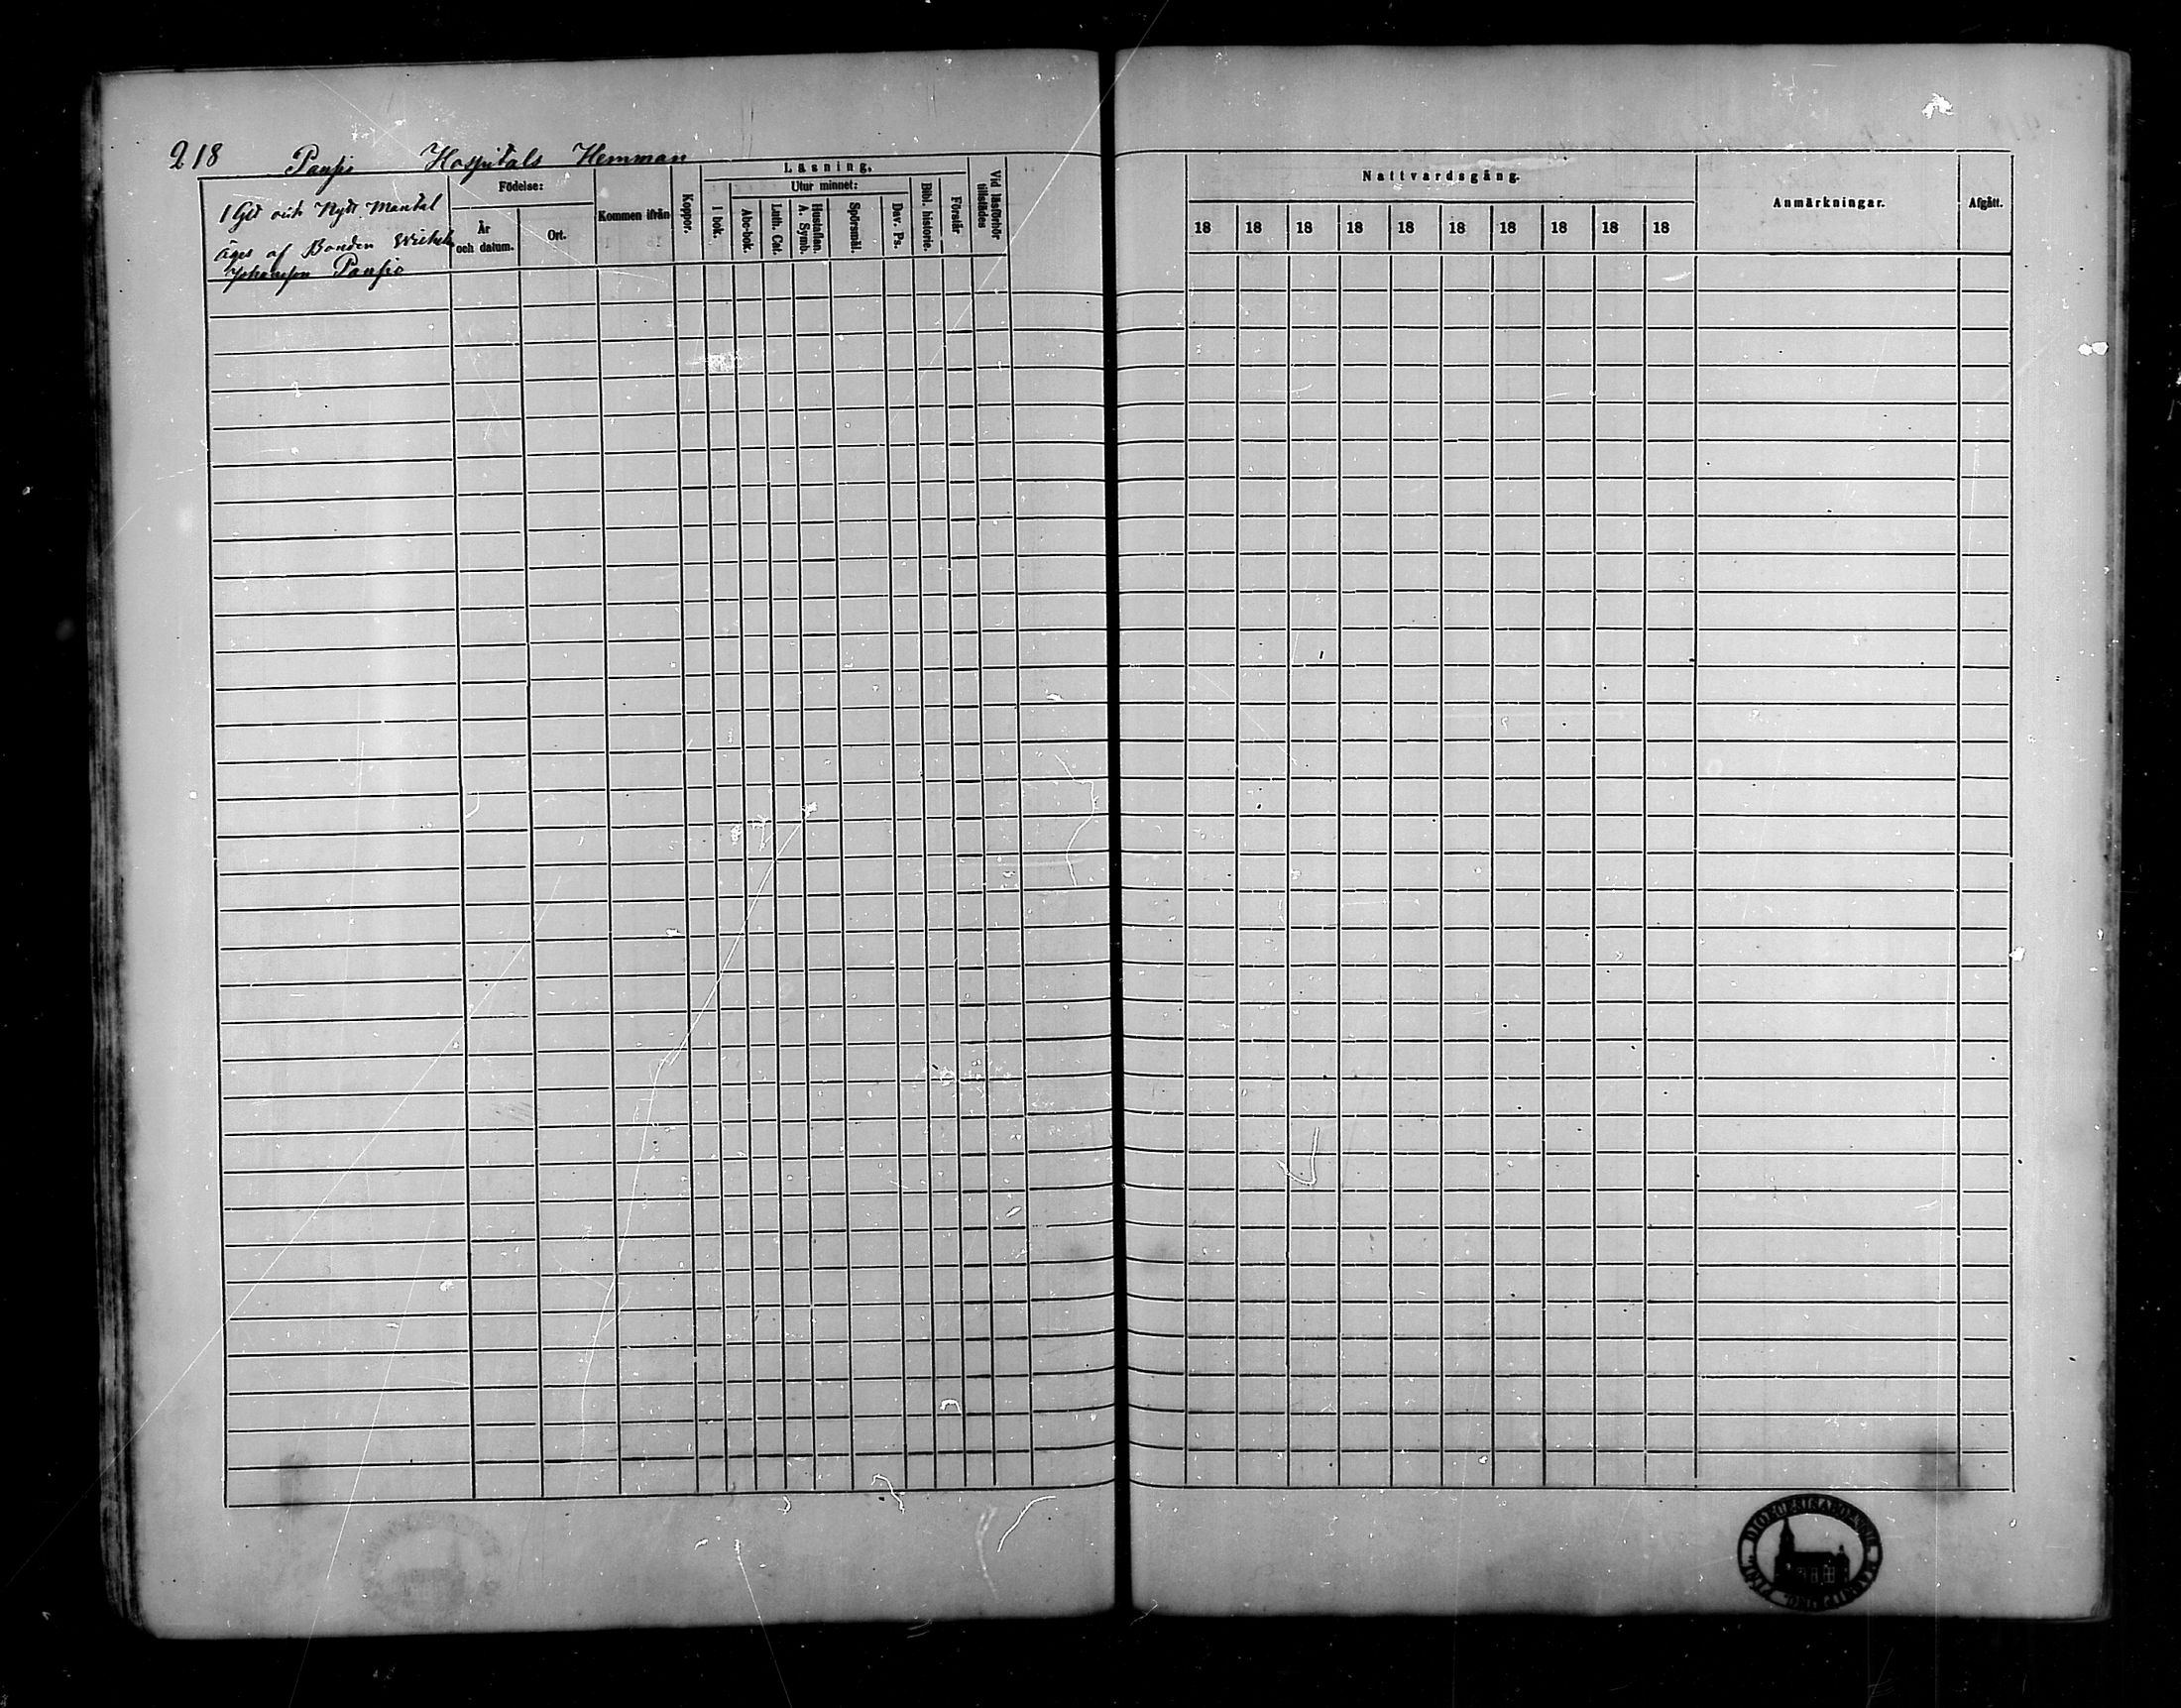 218 Paussio Hospitals Hemman
1 Gl. och Nytt Mantal
äges af Bonden Michel
Johansson Paussio
Födelse:
År och datum.
Ort.
Kommen ifrån
Koppor.
Läsning.
I bok.
Utur minnet:
Abc-bok.
Luth. Cat.
Hustaflan. A. Symb.
Spörsmål.
Dav. Ps.
Bibl. historie.
Förstår
Vid läsförhör tillstädes
Nattvardsgång.
18 18 18 18 18 18 18 18 18 18
Anmärkningar.
Afgått.